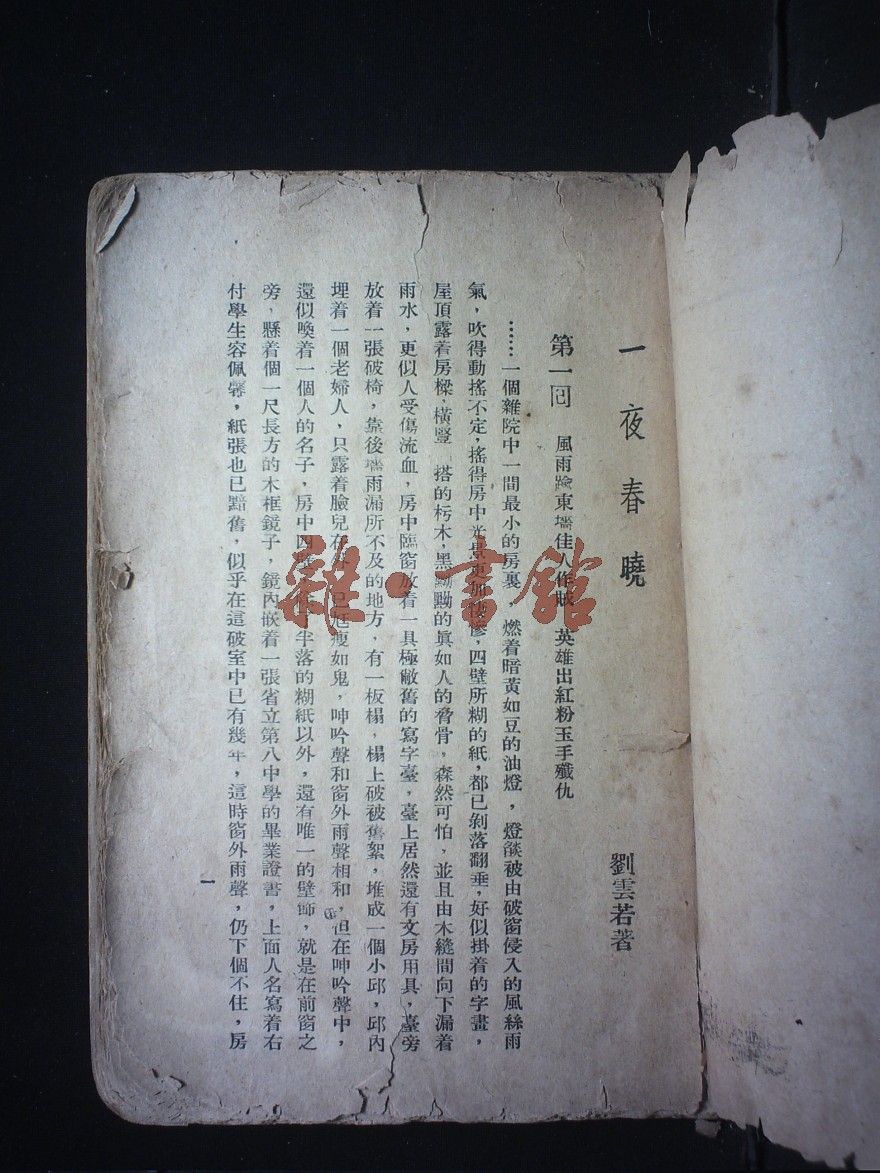 一夜春曉
劉雲若著
第一回 風雨踰東墻佳人作賊 英雄出紅粉玉手殲仇
……一個雜院中一間最小的房裏，燃着暗黃如豆的油燈，燈燄被由破窗侵入的風絲雨
氣，吹得動搖不定，搖得房中光景更加悽慘，四壁所糊的紙，都已剝落翻垂，好似掛着的字畫，
屋頂露着房樑，橫豎 搭的朽木，黑黝黝的眞如人的脅骨，森然可怕，並且由木縫間向下漏着
雨水，更似人受傷流血，房中臨窗放着一具極敝舊的寫字臺，臺上居然還有文房用具，臺旁
放着一張破椅，靠後墻雨漏所不及的地方，有一板榻，榻上破被舊絮，堆成一個小邱，邱內
埋着一個老婦人，只露着臉兒在 已尫瘦如鬼，呻吟聲和窗外雨聲相和，但在呻吟聲中，
還似喚着一個人的名子，房中四壁 半落的糊紙以外，還有唯一的壁飾，就是在前窗之
旁，懸着個一尺長方的木框鏡子，鏡內嵌着一張省立第八中學的畢業證書，上面人名寫着右
付學生容佩馨，紙張也已黯舊，似乎在這破室中已有幾年，這時窗外雨聲，仍下個不住，房
一
雜·書館